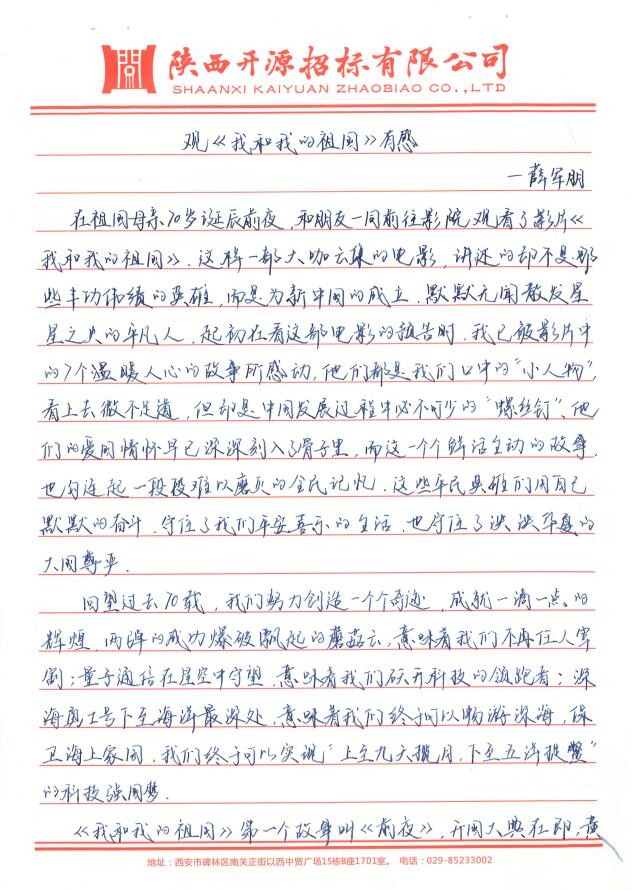 陕西开源招标有限公司
SHAANXI KAIYUAN ZHAOBIAO CO.,LTD
观《我和我的祖国》有感
—薛军朋
在祖国母亲70岁诞辰前夜,和朋友一同前往影院观看了影片《
我和我的祖国》.这样一部大咖云集的电影,讲述的却不是那
些丰功伟绩的英雄,而是为新中国的成立,默默无闻散发星
星之火的平凡人,起初在看这部电影的预告时,我已被影片中
的7个温暖人心的故事所感动,他们都是我们口中的“小人物”,
看上去微不足道,但却是中国发展过程中必不可少的“螺丝钉”、他
们的爱国情怀早已深深刻入了骨子里,而这一个个鲜活生动的故事,
也勾连起一段段难以磨灭的全民记忆.这些平民英雄们用自己
默默的奋斗,守住了我们平安喜乐的生活,也守住了泱泱华夏的
大国尊严.
回望过去70载,我们努力创造一个个奇迹,成就一滴一点的
辉煌,两弹的成功爆破飘起的蘑菇云,意味着我们不再任人宰
割;量子通信在星空中守望,意味着我们跃升科技的领跑者;深
海勇士号下至海洋最深处,意味着我们终于可以畅游深海,保
卫海上家园,我们终于可以实现“上至九天揽月,下至五洋捉鳖”
的科技强国梦.
《我和我的祖国》第一个故事叫《前夜》,开国大典在即,黄
地址:西安市碑林区南关正街以西中贸广场15栋B座1701室。 电话:029-85233002